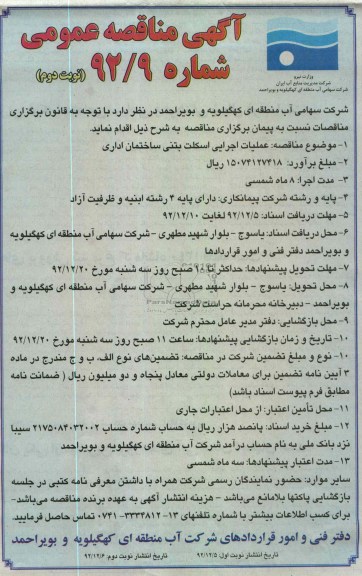 وزارت نیرو
شرکت مدیریت منابع آب ایران
شرکت سهامی آب منطقه ای کهگیلویه و بویراحمد
آگهی مناقصه عمومی
شماره ۹۲/۹ (نوبت دوم)
شرکت سهامی آب منطقه ای کهگیلویه و بویراحمد در نظر دارد با توجه به قانون برگزاری
مناقصات نسبت به پیمان برگزاری مناقصه به شرح ذیل اقدام نماید.
۱- موضوع مناقصه: عملیات اجرایی اسکلت بتنی ساختمان اداری
۲- مبلغ برآورد: ۱۵۰۷۴۱۲۷۴۱۸ ریال
۳- مدت اجرا: ۸ ماه شمسی
۴- پایه و رشته شرکت پیمانکاری: دارای پایه ۴ رشته ابنیه و ظرفیت آزاد
۵- مهلت دریافت اسناد: ۹۲/۱۲/۵ لغایت ۹۲/۱۲/۱۰
۶- محل دریافت اسناد: یاسوج - بلوار شهید مطهری - شرکت سهامی آب منطقه ای کهگیلویه
و بویراحمد دفتر فنی و امور قراردادها
۷- مهلت تحویل پیشنهادها: حداکثر تا ۱۰ صبح روز سه شنبه مورخ ۹۲/۱۲/۲۰
۸- محل تحویل: یاسوج - بلوار شهید مطهری - شرکت سهامی آب منطقه ای کهگیلویه و
بویراحمد - دبیرخانه محرمانه حراست شرکت
۹- محل بازگشایی: دفتر مدیر عامل محترم شرکت
۱۰- تاریخ و زمان بازگشایی پیشنهادها: ساعت ۱۱ صبح روز سه شنبه مورخ ۹۲/۱۲/۲۰
۱۰- نوع و مبلغ تضمین شرکت در مناقصه: تضمین‌های نوع الف، ب و ج مندرج در ماده
۳ آیین نامه تضمین برای معاملات دولتی معادل پنجاه و دو میلیون ریال ( ضمانت نامه
مطابق فرم پیوست اسناد باشد)
۱۱- محل تأمین اعتبار: از محل اعتبارات جاری
۱۲- مبلغ خرید اسناد: پانصد هزار ریال به حساب شماره حساب ۲۱۷۵۰۸۴۰۳۲۰۰۲ سیبا
نزد بانک ملی به نام حساب درآمد شرکت آب منطقه ای کهگیلویه و بویراحمد
۱۳- مدت اعتبار پیشنهادها: سه ماه شمسی
سایر موارد: حضور نمایندگان رسمی شرکت همراه با داشتن معرفی نامه کتبی در جلسه
بازگشایی پاکتها بلامانع می‌باشد - هزینه انتشار آگهی به عهده برنده مناقصه می‌باشد-
برای کسب اطلاعات بیشتر با شماره تلفنهای ۱۳-۳۳۳۴۸۱۲ -۰۷۴۱ تماس حاصل فرمایید.
دفتر فنی و امور قراردادهای شرکت آب منطقه ای کهگیلویه و بویراحمد
تاریخ انتشار نوبت اول: ۹۲/۱۲/۵ تاریخ انتشار نوبت دوم: ۹۲/۱۲/۶